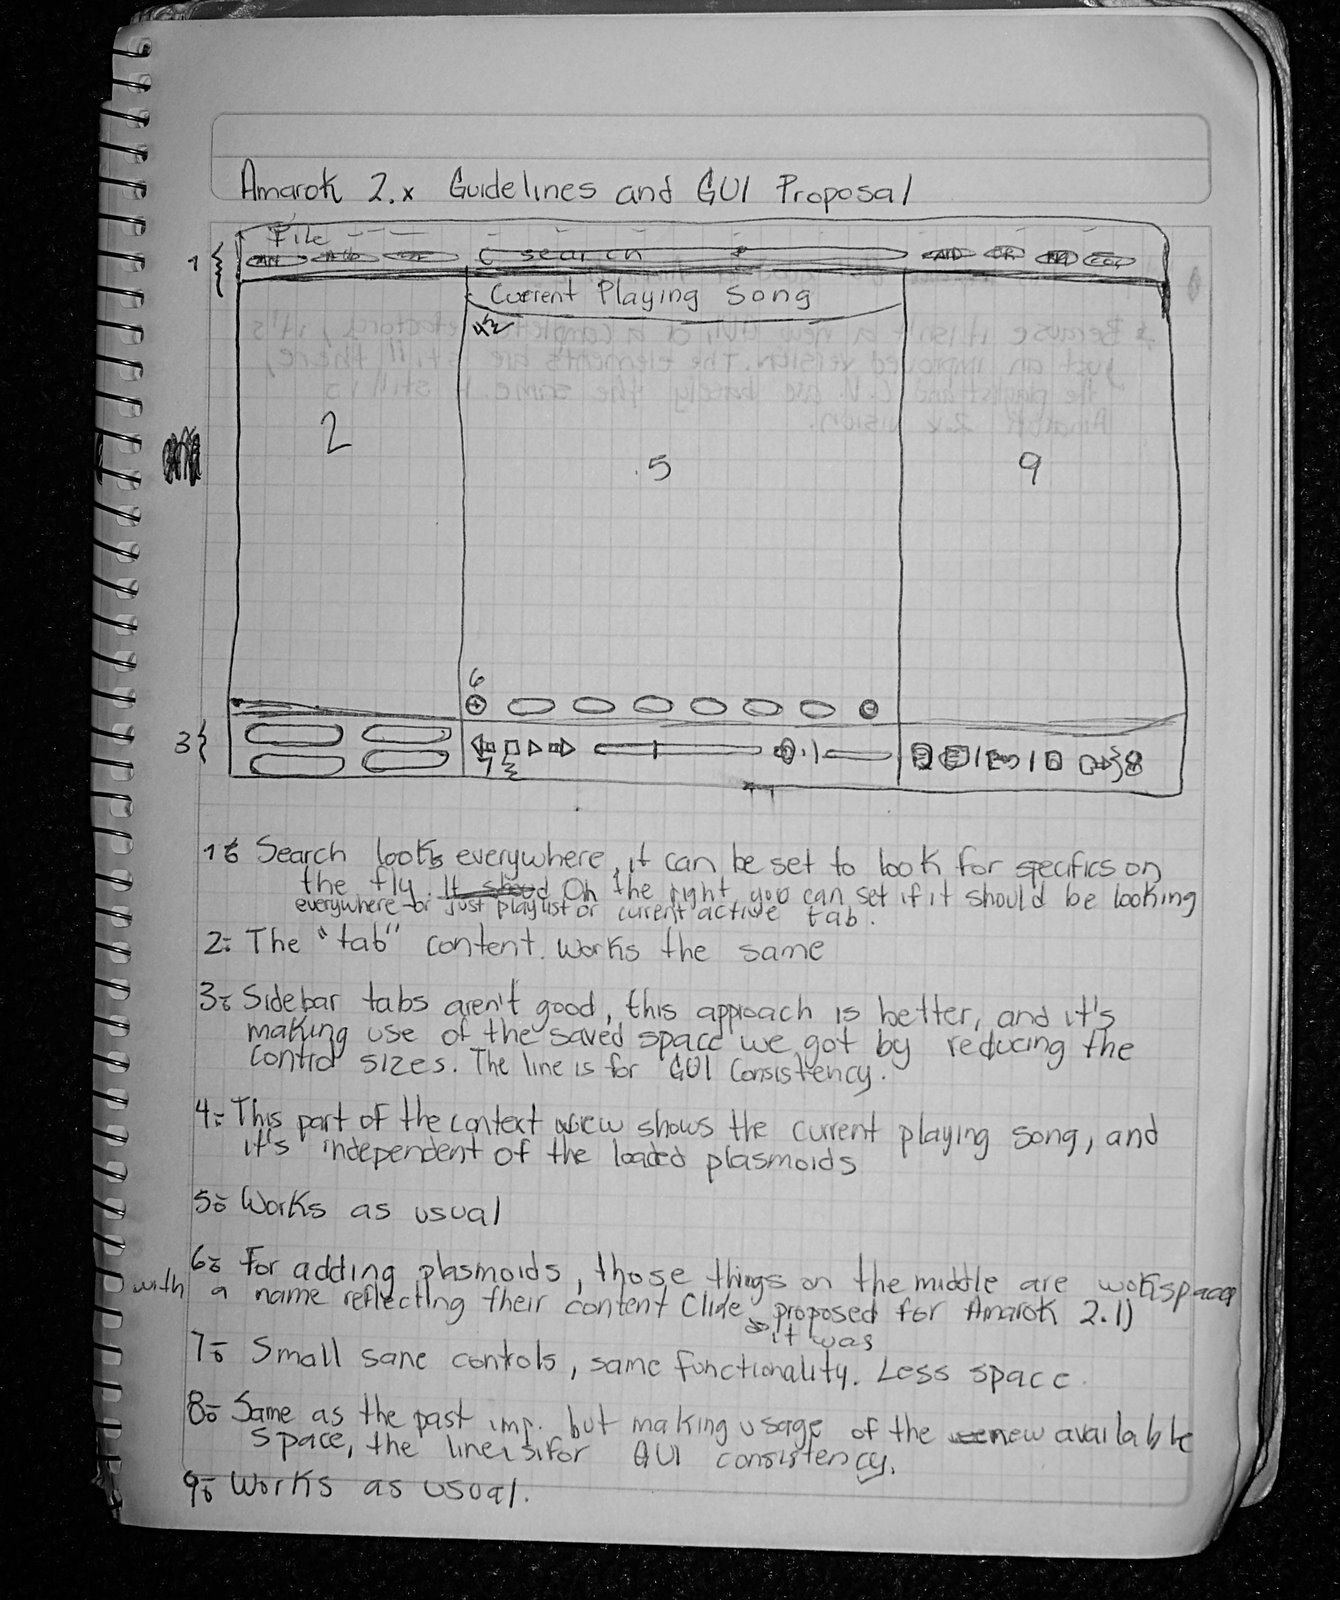 Amarok 2.x Guidelines and GUI Proposal
File
1
search
Current Playing Song
4
2
5
9
6
3
7
8
1: Search looks everywhere, it can be set to look for specifics on
the fly. On the right you can set if it should be looking
everywhere or just playlist or current active tab.
2: The "tab" content. Works the same
3: Sidebar tabs aren't good, this approach is better, and it's
making use of the saved space we got by reducing the
control sizes. The line is for GUI Consistency.
4: This part of the context view shows the current playing song, and
it's independent of the loaded plasmoids
5: Works as usual
6: For adding plasmoids, those things on the middle are workspaces
with a name reflecting their content (like proposed for Amarok 2.1)
it was
7: Small sane controls, same functionality. Less space.
8: Same as the past imp. but making usage of the new available
space, the line is for GUI consistency.
9: Works as usual.